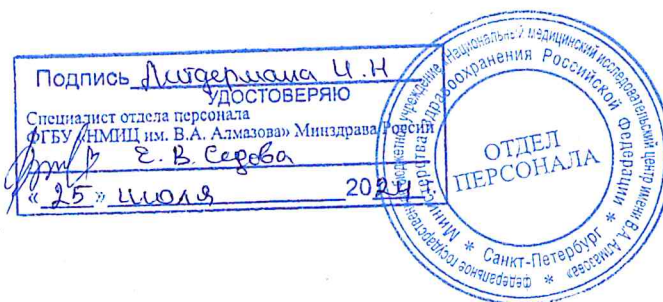 Подпись Лигдермана И.Н
УДОСТОВЕРЯЮ
Специалист отдела персонала
ФГБУ «НМИЦ им. В.А. Алмазова» Минздрава России
Е. В. Седова
«25» июля 2024
Министерство здравоохранения Российской Федерации
федеральное государственное бюджетное учреждение «Национальный медицинский исследовательский центр имени В.А. Алмазова»
ОТДЕЛ
ПЕРСОНАЛА
* Санкт-Петербург *